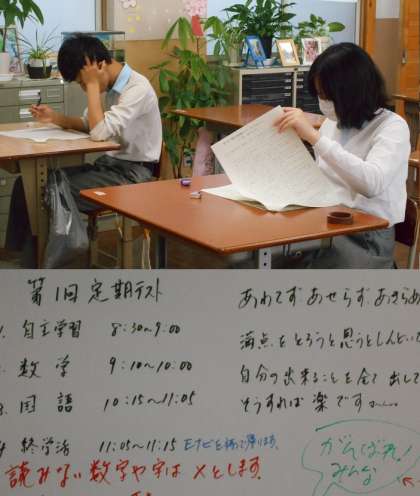 第1回 定期テスト
1. 自主学習 8:30~9:00
2. 数学 9:10~10:00
3. 国語 10:15~11:05
4 終学活 11:05~11:15 モナビを持って帰ります。
読みない数字や字は×とします。
あわてず あせらず あきらめ
満点をとろうと思うとしんどいで
自分の出来ることを全て出して
そうすれば楽です
がんばれ!
みんな